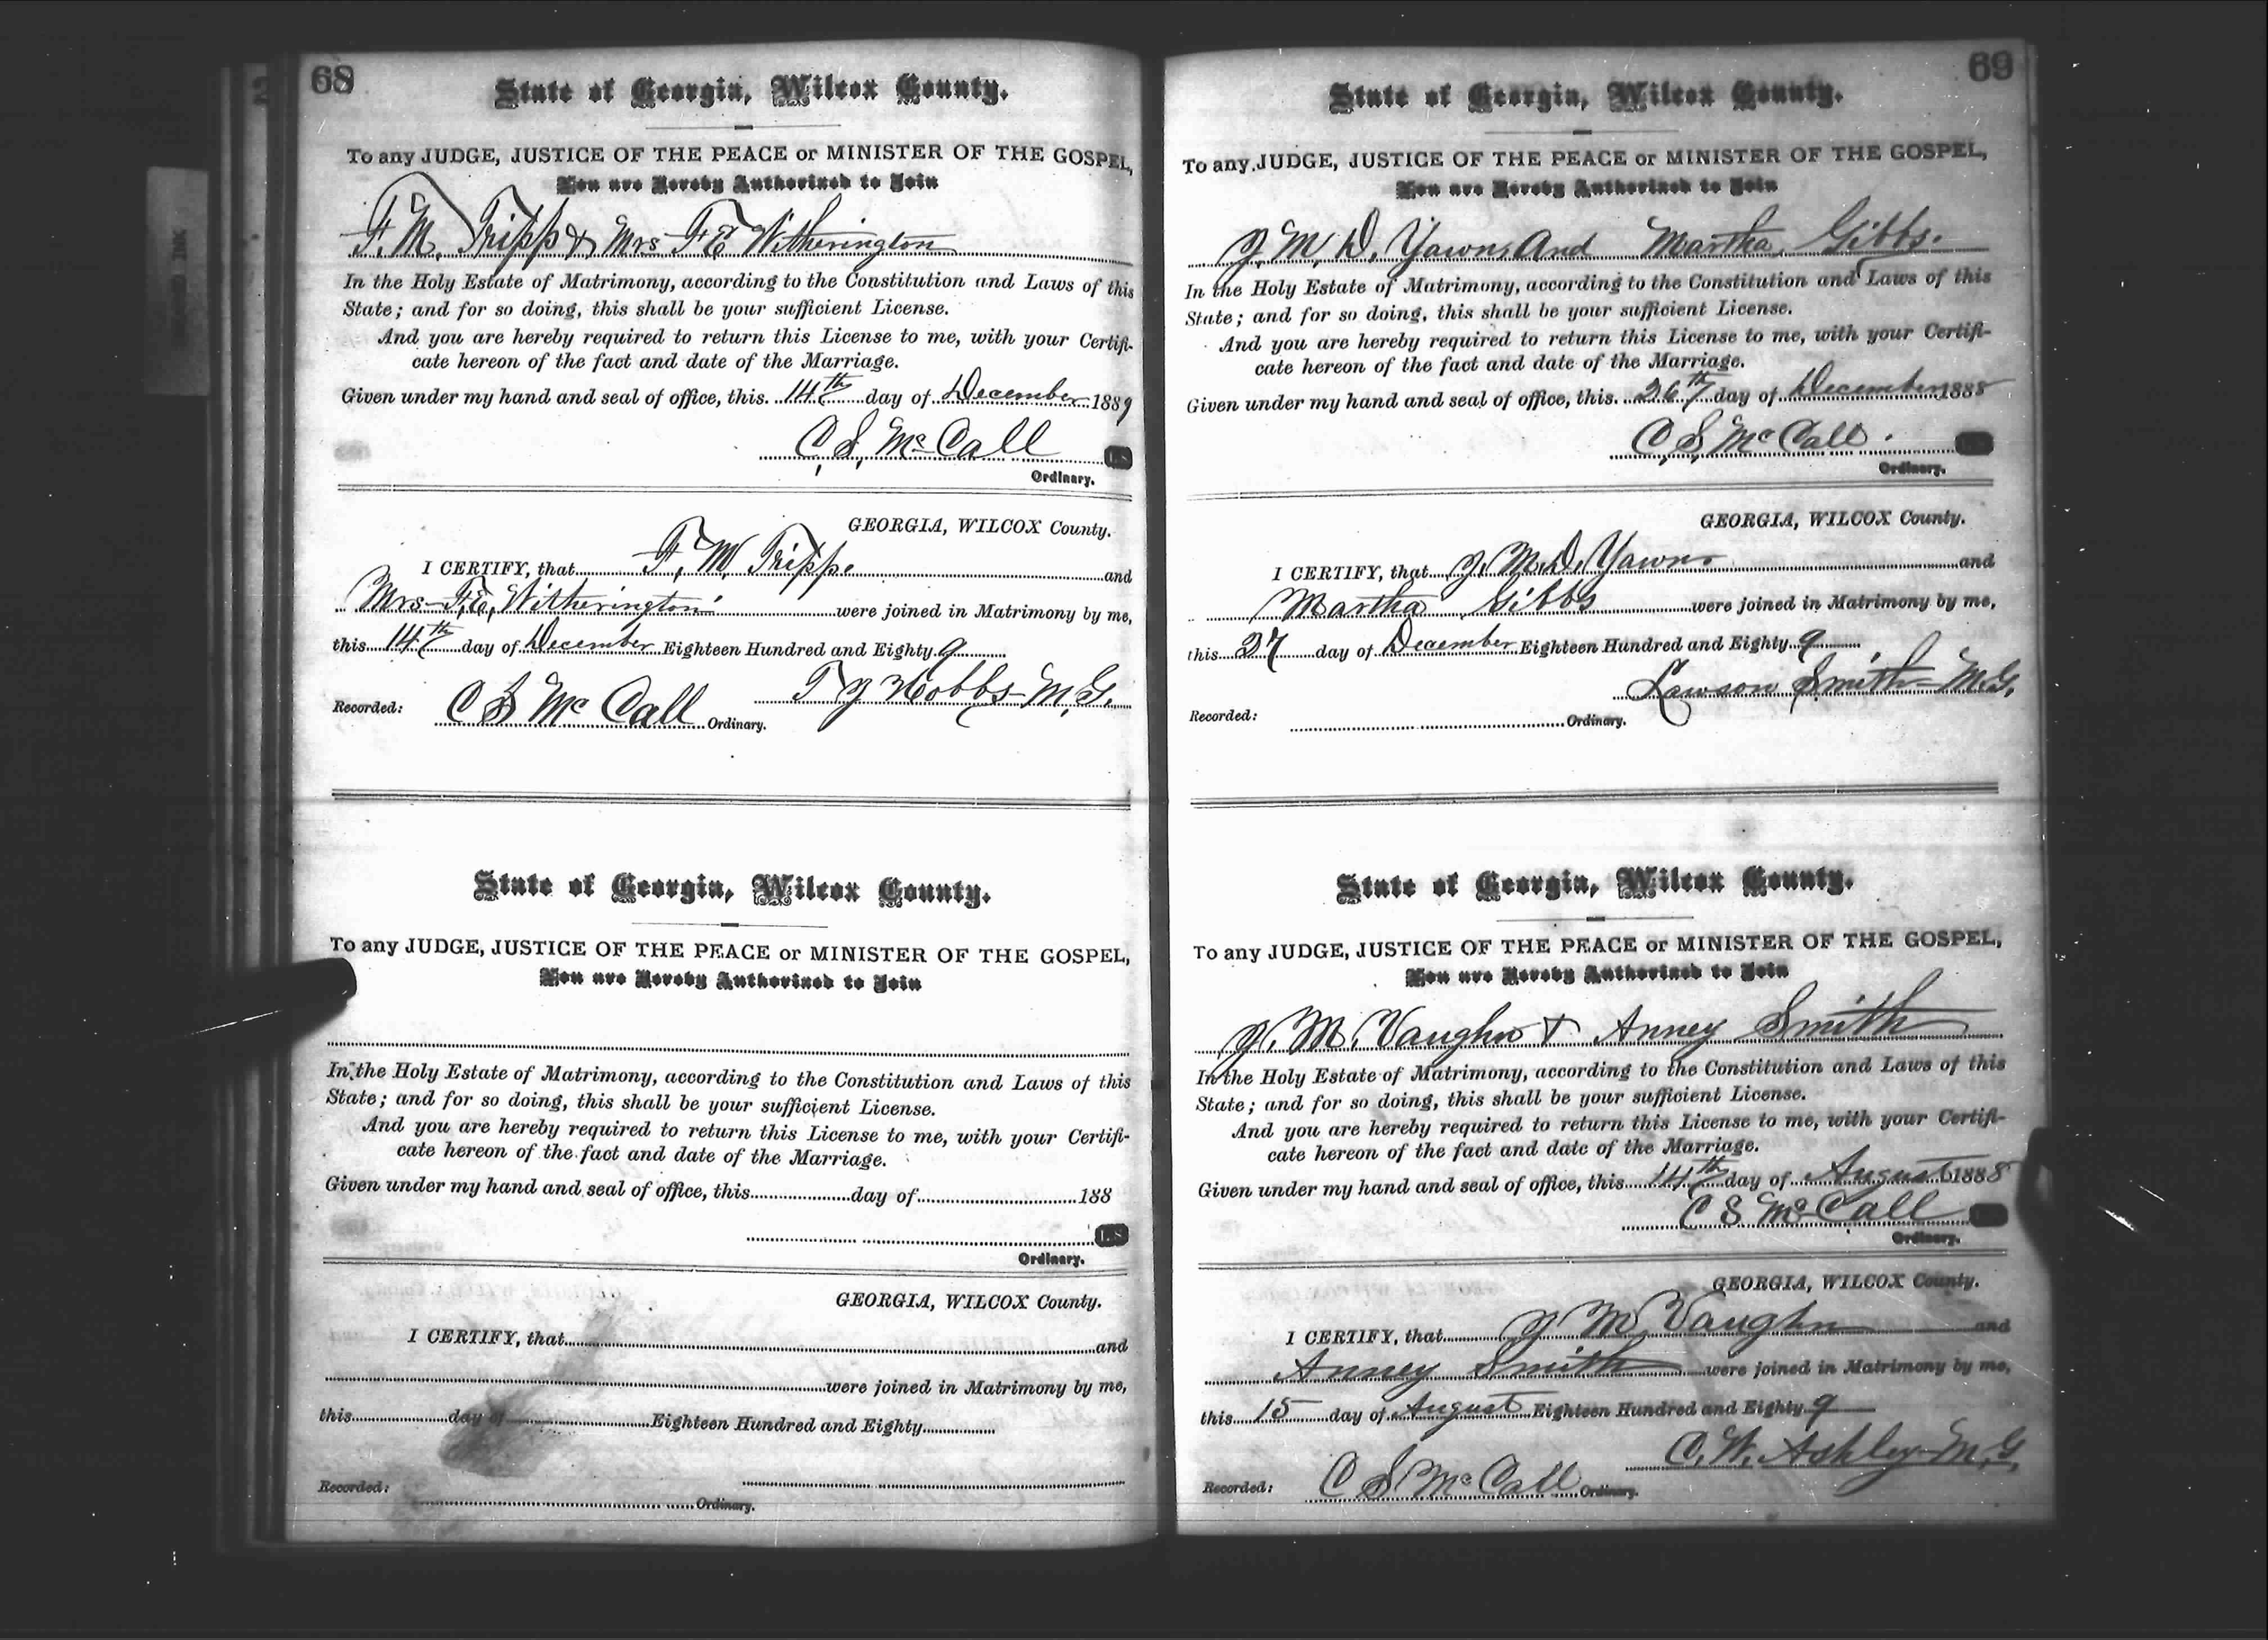 68
State of Georgia, Wilcox County.
To any JUDGE, JUSTICE OF THE PEACE or MINISTER OF THE GOSPEL,
You are Hereby Authorized to Join
F. M. Tripp & Mrs F E Witherington
In the Holy Estate of Matrimony, according to the Constitution and Laws of this
State; and for so doing, this shall be your sufficient License.
And you are hereby required to return this License to me, with your Certifi-
cate hereon of the fact and date of the Marriage.
Given under my hand and seal of office, this 14th day of December 1889
C. S. McCall
LS
Ordinary.
GEORGIA, WILCOX County.
I CERTIFY, that F. M. Tripp. and
Mrs F. E. Witherington were joined in Matrimony by me,
this 14th day of December Eighteen Hundred and Eighty 9
T J Hobbs M.G.
Recorded: C S McCall Ordinary.
State of Georgia, Wilcox County.
To any JUDGE, JUSTICE OF THE PEACE or MINISTER OF THE GOSPEL,
You are Hereby Authorized to Join
In the Holy Estate of Matrimony, according to the Constitution and Laws of this
State; and for so doing, this shall be your sufficient License.
And you are hereby required to return this License to me, with your Certifi-
cate hereon of the fact and date of the Marriage.
Given under my hand and seal of office, this day of 188
LS
Ordinary.
GEORGIA, WILCOX County.
I CERTIFY, that and
were joined in Matrimony by me,
this day of Eighteen Hundred and Eighty
Recorded: Ordinary.
69
State of Georgia, Wilcox County.
To any JUDGE, JUSTICE OF THE PEACE or MINISTER OF THE GOSPEL,
You are Hereby Authorized to Join
J. M. D. Yawn And Martha Gibbs.
In the Holy Estate of Matrimony, according to the Constitution and Laws of this
State; and for so doing, this shall be your sufficient License.
And you are hereby required to return this License to me, with your Certifi-
cate hereon of the fact and date of the Marriage.
Given under my hand and seal of office, this 26th day of December 1888
C. S. McCall.
Ordinary.
GEORGIA, WILCOX County.
I CERTIFY, that J. M. D. Yawn and
Martha Gibbs were joined in Matrimony by me,
this 27 day of December Eighteen Hundred and Eighty 9
Lawson Smith M.G.
Recorded: Ordinary.
State of Georgia, Wilcox County.
To any JUDGE, JUSTICE OF THE PEACE or MINISTER OF THE GOSPEL,
You are Hereby Authorized to Join
J. M. Vaughn & Anney Smith
In the Holy Estate of Matrimony, according to the Constitution and Laws of this
State; and for so doing, this shall be your sufficient License.
And you are hereby required to return this License to me, with your Certifi-
cate hereon of the fact and date of the Marriage.
Given under my hand and seal of office, this 14th day of August 1888
C S McCall
Ordinary.
GEORGIA, WILCOX County.
I CERTIFY, that J M Vaughn and
Anney Smith were joined in Matrimony by me,
this 15 day of August Eighteen Hundred and Eighty 9
C. W. Ashley M.G.
Recorded: C S McCall Ordinary.